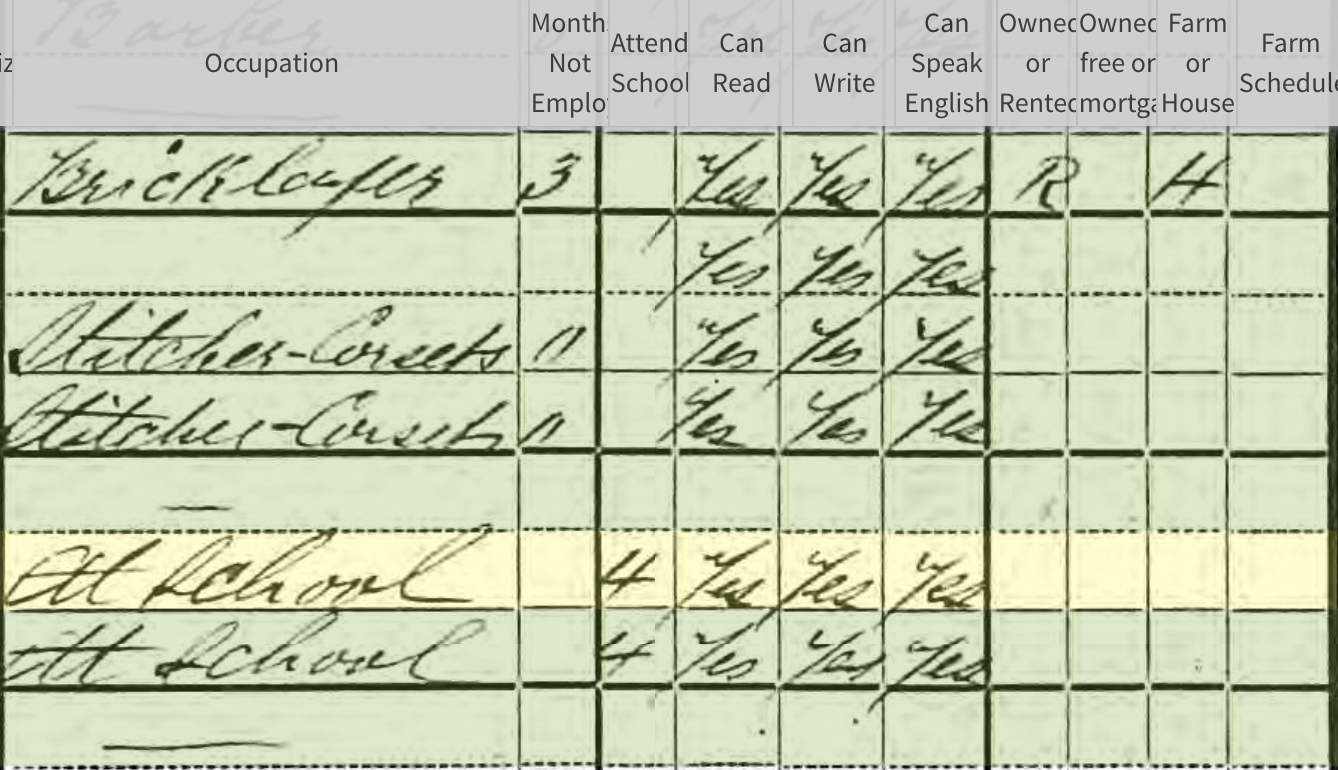 Barber
iz Occupation Month Not Emplo Attend School Can Read Can Write Can Speak English Owned or Rented Owned free or mortga Farm or House Farm Schedule
Bricklayer 3 Yes Yes Yes R H
Yes Yes Yes
Stitcher-Corsets 0 Yes Yes Yes
Stitcher-Corsets 0 Yes Yes Yes
—
At School 4 Yes Yes Yes
At School 4 Yes Yes Yes
—